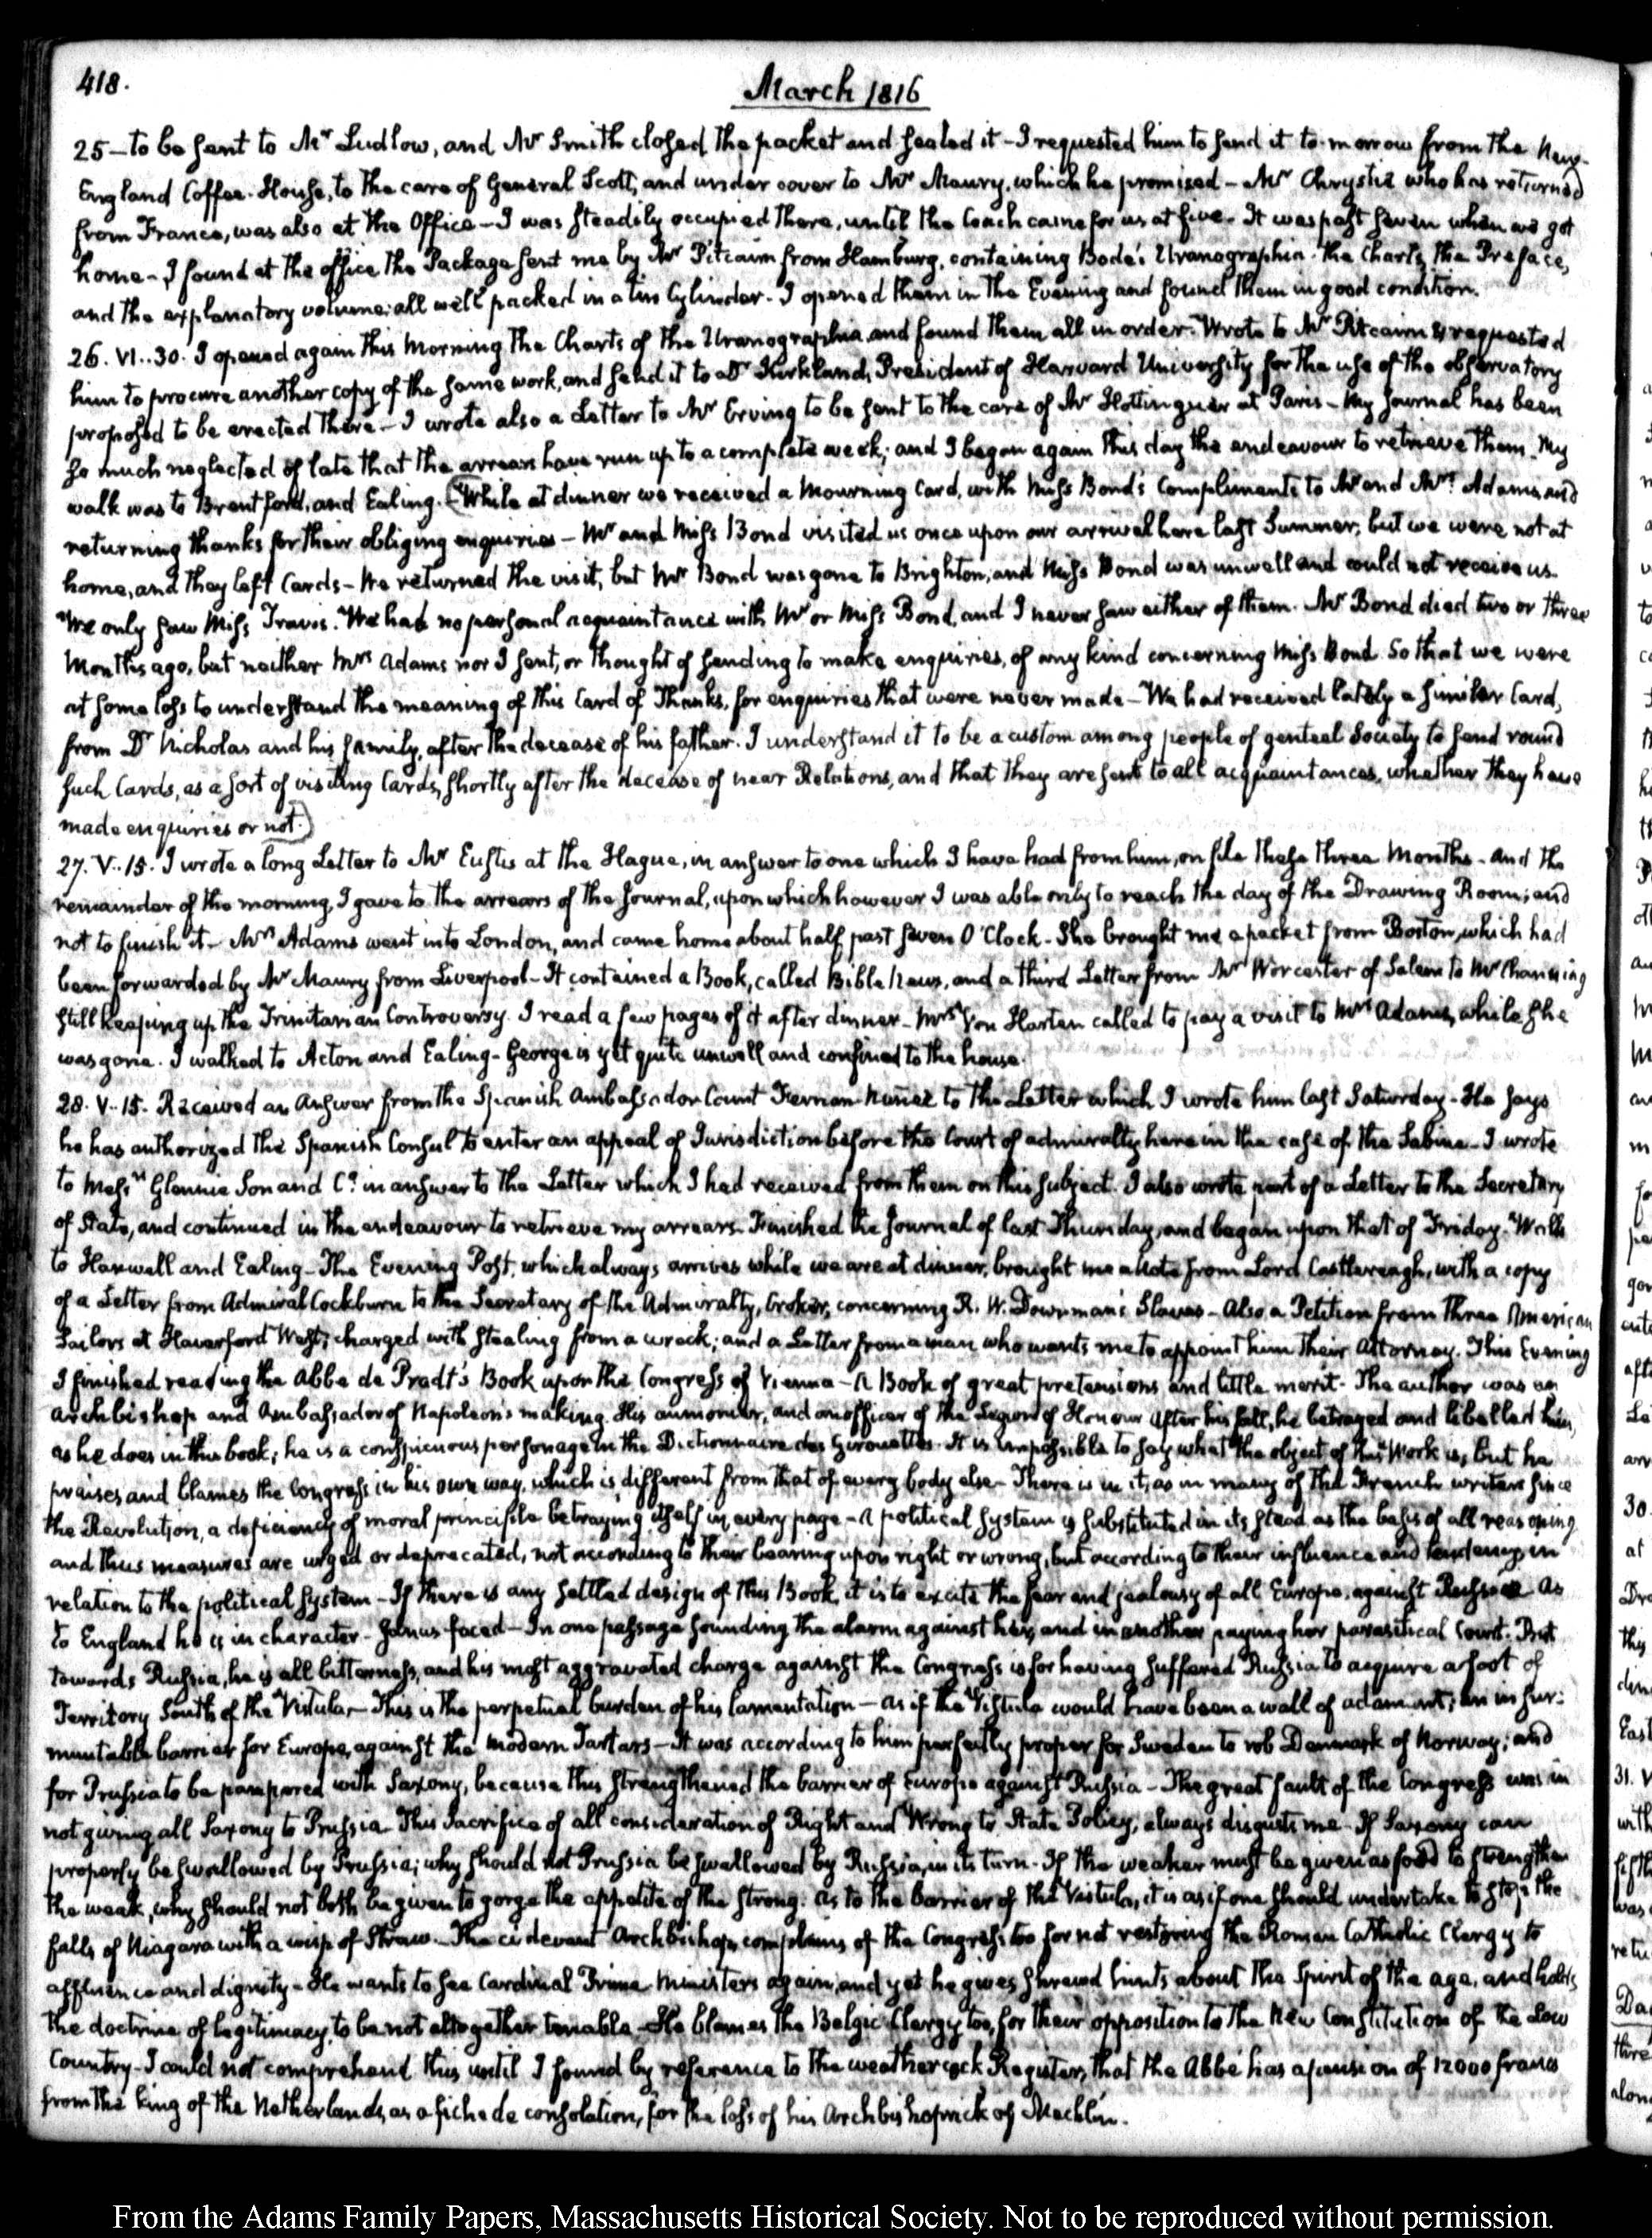 418.
March 1816
25 – to be sent to Mr Ludlow, and Mr Smith closed the packet and sealed it – I requested him to send it to-morrow from the New-
England Coffee-House, to the care of General Scott, and under cover to Mr Maury, which he promised – Mr Chrystie who has returned
from France, was also at the Office – I was steadily occupied there, until the Coach came for us at five – It was past seven when we got
home – I found at the office the Package sent me by Mr Pitcairn from Hamburg, containing Bode's Uranographia – the Charts, the Preface,
and the explanatory volume; all well packed in a tin Cylinder – I opened them in the Evening and found them in good condition.
26. VI..30. I opened again this Morning the Charts of the Uranographia, and found them all in order. Wrote to Mr Pitcairn & requested
him to procure another copy of the same work, and send it to Dr Kirkland, President of Harvard University for the use of the observatory
proposed to be erected there – I wrote also a Letter to Mr Erving to be sent to the care of Mr Hottinguer at Paris – My Journal has been
so much neglected of late that the arrears have run up to a complete week; and I began again this day the endeavour to retrieve them. My
walk was to Brentford, and Ealing. (While at dinner we received a Mourning Card, with Miss Bond's Compliments to Mr and Mrs Adams and
returning thanks for their obliging enquiries – Mr and Miss Bond visited us once upon our arrival here last Summer; but we were not at
home, and they left Cards – We returned the visit, but Mr Bond was gone to Brighton, and Miss Bond was unwell and could not receive us.
We only saw Miss Travis. We had no personal acquaintance with Mr or Miss Bond, and I never saw either of them. Mr Bond died two or three
Months ago, but neither Mrs Adams nor I sent, or thought of sending to make enquiries, of any kind concerning Miss Bond. So that we were
at some loss to understand the meaning of this Card of Thanks, for enquiries that were never made – We had received lately a similar Card,
from Dr Nicholas and his family, after the decease of his father. I understand it to be a custom among people of genteel Society to send round
such Cards, as a sort of visiting Cards, shortly after the decease of near Relations, and that they are sent to all acquaintances, whether they have
made enquiries or not.)
27. V..15. I wrote a long Letter to Mr Eustis at the Hague, in answer to one which I have had from him, on file these three Months – And the
remainder of the morning, I gave to the arrears of the Journal, upon which however I was able only to reach the day of the Drawing Room; and
not to finish it – Mrs Adams went into London, and came home about half past seven O'Clock – She brought me a packet from Boston, which had
been forwarded by Mr Maury from Liverpool – It contained a Book, called Bible News, and a third Letter from Mr Worcester of Salem to Mr Channing
still keeping up the Trinitarian Controversy. I read a few pages of it after dinner – Mrs Von Harten called to pay a visit to Mrs Adams, while she
was gone. I walked to Acton and Ealing – George is yet quite unwell and confined to the house.
28. V..15. Received an Answer from the Spanish Ambassador Count Fernan-Nuñez to the Letter which I wrote him last Saturday – He says
he has authorized the Spanish Consul to enter an appeal of Jurisdiction before the Court of admiralty here in the case of the Sabine – I wrote
to Messrs Glennie Son and Co. in answer to the Letter which I had received from them on this subject. I also wrote part of a Letter to the Secretary
of State, and continued in the endeavour to retrieve my arrears. Finished the Journal of last Thursday, and began upon that of Friday. Walk
to Hanwell and Ealing – The Evening Post, which always arrives while we are at dinner, brought me a Note from Lord Castlereagh, with a copy
of a Letter from Admiral Cockburn to the Secretary of the Admiralty, Croker, concerning R. W. Downman's Slaves – Also a Petition from three American
Sailors at Haverford West; charged with stealing from a wreck; and a Letter from a man who wants me to appoint him their Attorney. This Evening
I finished reading the Abbé de Pradt's Book upon the Congress of Vienna – A Book of great pretensions and little merit – The author was an
archbishop and Ambassador of Napoleon's making. His aumonier, and an officer of the Legion of Honour. After his fall, he betrayed and libelled him,
as he does in this book; he is a conspicuous personage in the Dictionnaire des Girouettes. It is impossible to say what the object of this Work is, but he
praises and blames the Congress in his own way, which is different from that of every body else – There is in it, as in many of the French writers since
the Revolution, a deficiency of moral principle betraying itself in every page – A political system is substituted in its stead, as the basis of all reasoning
and thus measures are urged or deprecated, not according to their bearing upon right or wrong, but according to their influence and tendency in
relation to the political system – If there is any settled design of this Book, it is to excite the fear and jealousy of all Europe, against Russia. As
to England he is in character – Janus-faced – In one passage sounding the alarm against her, and in another paying her parasitical Court. But
towards Russia, he is all bitterness, and his most aggravated charge against the Congress is for having suffered Russia to acquire a foot of
Territory South of the Vistula – This is the perpetual burden of his lamentation – as if the Vistula would have been a wall of adamant; an insur-
mountable barrier for Europe, against the modern Tartars – It was according to him perfectly proper for Sweden to rob Denmark of Norway; and
for Prussia to be pampered with Saxony, because this strengthened the barrier of Europe against Russia – The great fault of the Congress was in
not giving all Saxony to Prussia. This Sacrifice of all consideration of Right and Wrong to State Policy, always disgusts me. If Saxony can
properly be swallowed by Prussia; why should not Prussia be swallowed by Russia, in its turn. If the weaker must be given as food to strengthen
the weak, why should not both be given to gorge the appetite of the strong. As to the barrier of the Vistula, it is as if one should undertake to stop the
falls of Niagara with a wisp of Straw. The cidevant Archbishop complains of the Congress too for not restoring the Roman Catholic Clergy to
affluence and dignity – He wants to see Cardinal Prime Ministers again, and yet he gives shrewd hints about the Spirit of the age, and holds
the doctrine of legitimacy to be not altogether tenable – He blames the Belgic Clergy too, for their opposition to the New Constitution of the Low
Country – I could not comprehend this until I found by reference to the weathercock Register, that the Abbé has a pension of 12000 francs
from the king of the Netherlands, as a fiche de consolation, for the loss of his Archbishoprick of Mechlin.
From the Adams Family Papers, Massachusetts Historical Society. Not to be reproduced without permission.